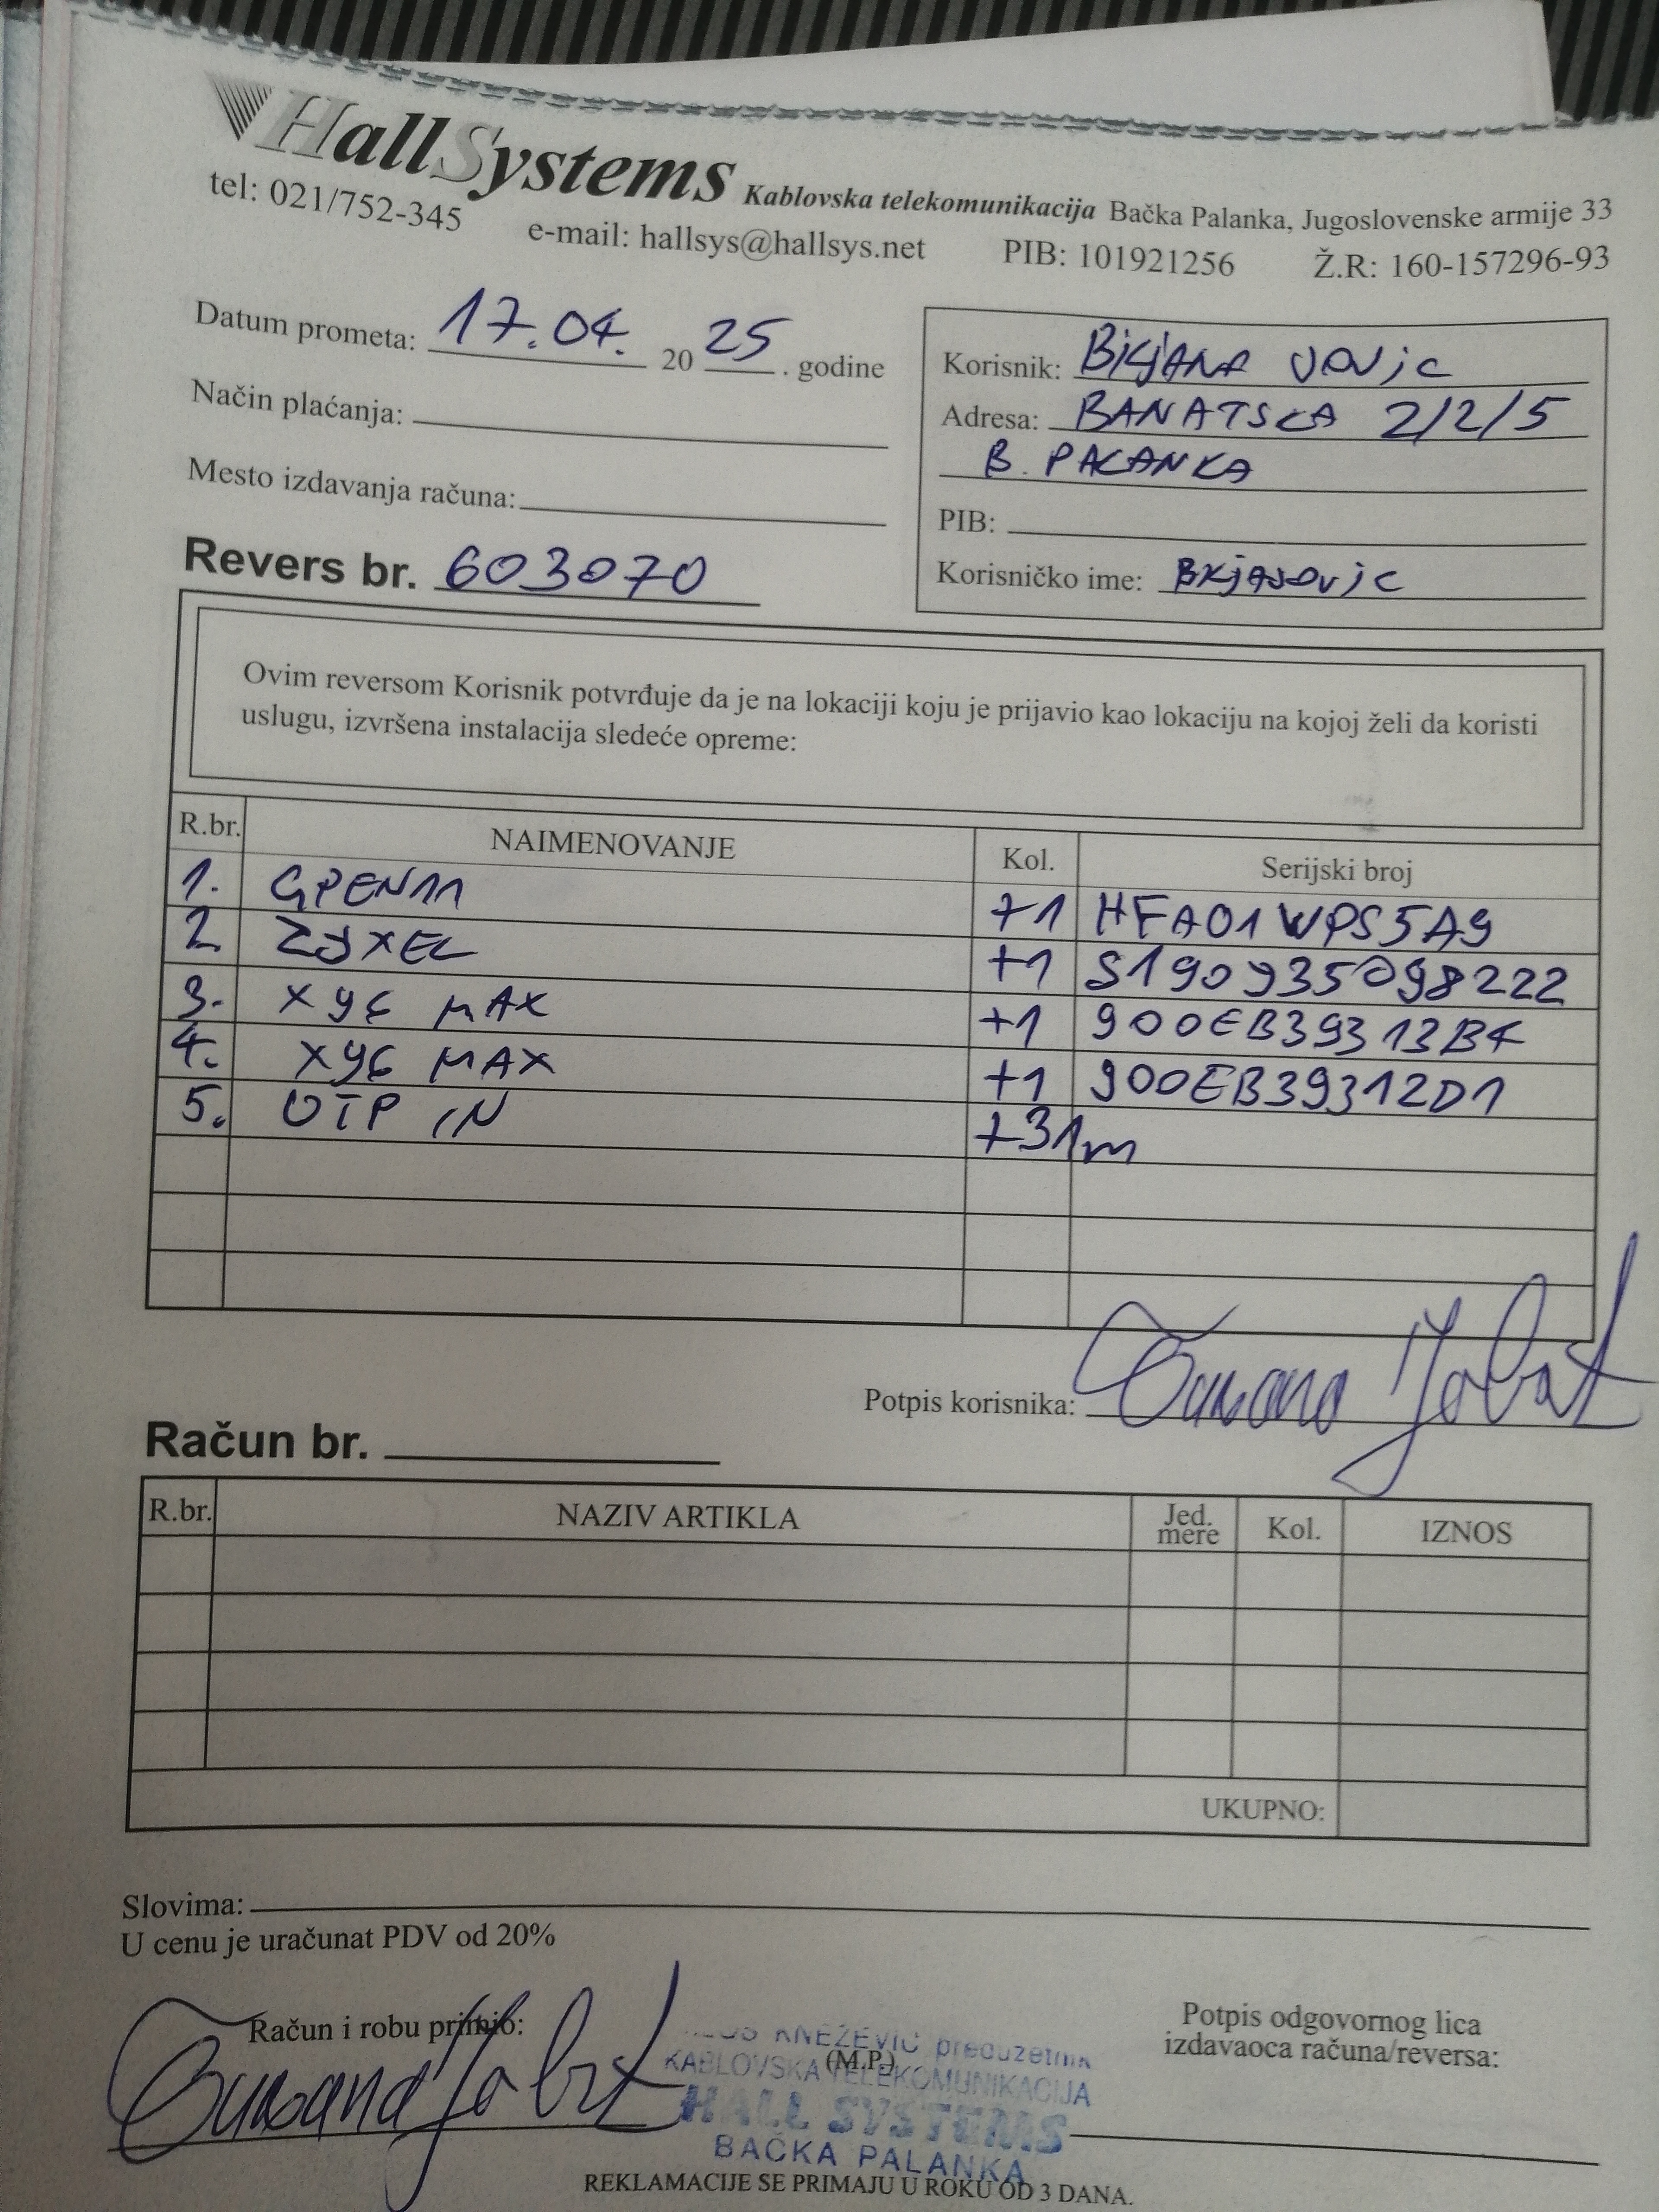 HallSystems Kablovska telekomunikacija Bačka Palanka, Jugoslovenske armije 33
tel: 021/752-345 e-mail: hallsys@hallsys.net PIB: 101921256 Ž.R: 160-157296-93
Datum prometa: 17.04. 2025. godine
Način plaćanja:
Mesto izdavanja računa:
Revers br. 603070
Korisnik: BILJANA VOVIC
Adresa: BANATSKA 2/2/5
B. PALANKA
PIB:
Korisničko ime:
Ovim reversom Korisnik potvrđuje da je na lokaciji koju je prijavio kao lokaciju na kojoj želi da koristi
uslugu, izvršena instalacija sledeće opreme:
R.br. NAIMENOVANJE Kol. Serijski broj
1. GPEN11 +1 HFA01WPS5A9
2. ZYXEL +1 S190935098222
3. X96 MAX +1 900EB39313B4
4. X96 MAX +1 900EB39312D1
5. UTP IN +31m
Potpis korisnika:
Račun br.
R.br. NAZIV ARTIKLA Jed. mere Kol. IZNOS
UKUPNO:
Slovima:
U cenu je uračunat PDV od 20%
Račun i robu primio:
(M.P.)
Potpis odgovornog lica
izdavaoca računa/reversa:
KNEŽEVIĆ preduzetnik
KABLOVSKA TELEKOMUNIKACIJA
HALL SYSTEMS
BAČKA PALANKA
REKLAMACIJE SE PRIMAJU U ROKU OD 3 DANA.